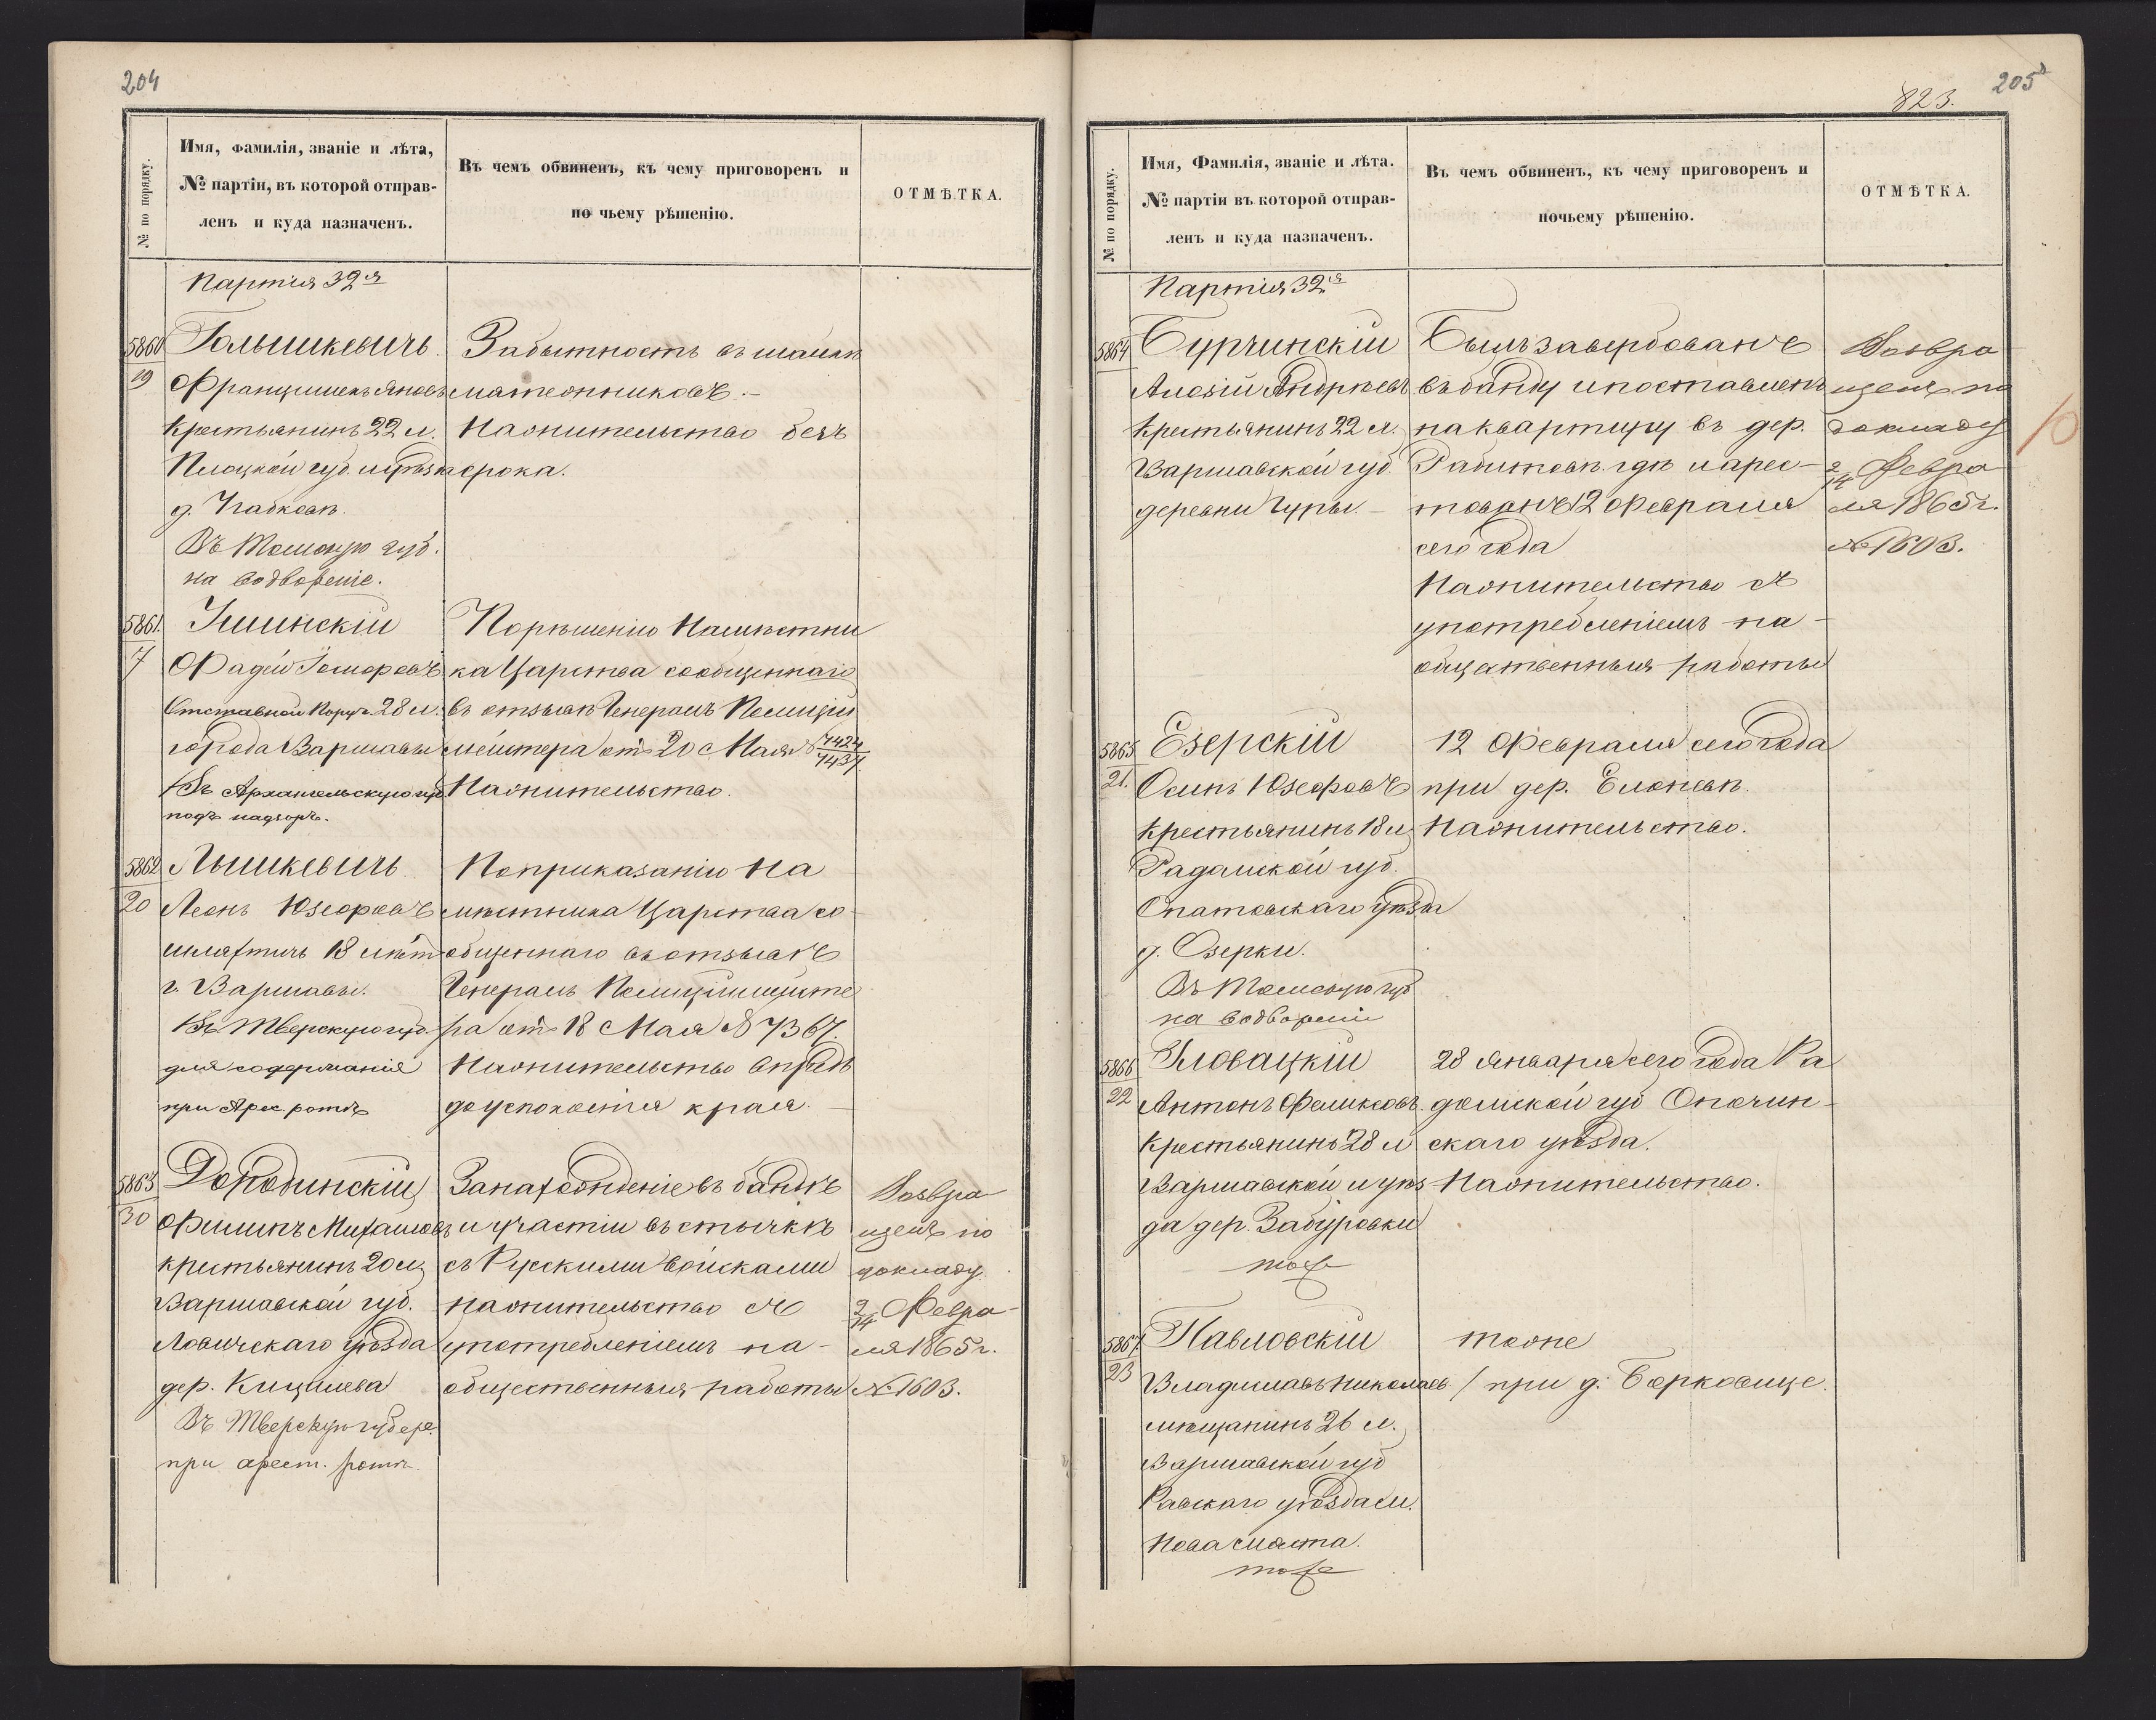 204
№ по порядку.
Имя, фамилія, званіе и лѣта,
№ партіи, въ которой отправ-
ленъ и куда назначенъ.
Въ чемъ обвиненъ, къ чему приговоренъ и
по чьему рѣшенію.
ОТМѢТКА.
Партія 32я
5860
19
Голышкевичъ
Францишекъ Яновъ
Крестьянинъ 22 л.
Плоцкой губ. и уѣзда
д.
Въ Томскую губ.
на водвореніе.
За бытность въ шайкѣ
мятежниковъ.-
На жительство безъ
срока.
5861.
7
Илинскій
Фадей
Отставной Поруч. 28 л.
города Варшавы
Въ Архангельскую губ
подъ надзоръ.
По рѣшенію Намѣстни
ка Царства сообщеннаго
въ отзывѣ Генералъ Полиціи
мейстера отъ 20 Мая № 7424/7437
На жительство.
5862
20
Лышкевичъ
Леонъ Юзефовъ
шляхтичъ 18 лѣтъ
г. Варшавы.
Въ Тверскую губ.
для содержанія
при Арес. ротѣ
По приказанію На
мѣстника Царства со
общеннаго въ отзывѣ
Генералъ Полиціймейсте
ра отъ 18 Мая № 7367.
На жительство впредь
до успокоенія края.
5863
30
Дородинскій
Филипъ Михайловъ
крестьянинъ 20 л
Варшавской губ.
Ловичскаго уѣзда
дер.
Въ Тверскую губер.
при арест. ротѣ
За нахожденіе въ бандѣ
и участіи въ стычкѣ
съ Русскими войсками
на жительство съ
употребленіемъ на
общественныя работы
Возвра
щенъ по
докладу
2/14 Февра-
ля 1865 г.
№ 1603.
205
823.
№ по порядку.
Имя, Фамилія, званіе и лѣта.
№ партіи въ которой отправ-
ленъ и куда назначенъ.
Въ чемъ обвиненъ, къ чему приговоренъ и
почьему рѣшенію.
ОТМѢТКА.
Партія 32я
5864
Бурчинскій
Алоэій Андреевъ
Крестьянинъ 22 л.
Варшавской губ.
деревни Гуры.-
Былъ завербованъ
въ банду и поставленъ
на квартиру въ дер.
гдѣ и арес-
тованъ 12 Февраля
сего года
На жительство съ
употребленіемъ на-
общественныя работы
Возвра
щенъ по
докладу
2/14 Февра
ля 1865 г.
№ 1603.
10
5865
21.
Езерскій
Осипъ Юзефовъ
Крестьянинъ 18 л
Радомской губ.
Опатовскаго уѣзда
д. Озерки.
Въ Томскую губ
на водвореніе
12 Февраля сего года
при дер. Еленевѣ.
На жительство.
5866
22
Гловацкій
Антонъ Феликсовъ
Крестьянинъ 28 л
Варшавской и уѣз
да дер. Забуровки
тоже
28 Января сего года Ра
домской губ Опочин-
скаго уѣзда.
На жительство.
5867
23
Павловскій
Владиславъ Николаев.
мѣщанинъ 26 л.
Варшавской губ
Равскаго уѣзда м.
Нова Мяста.
тоже
тоже
/ при д. Борковице.